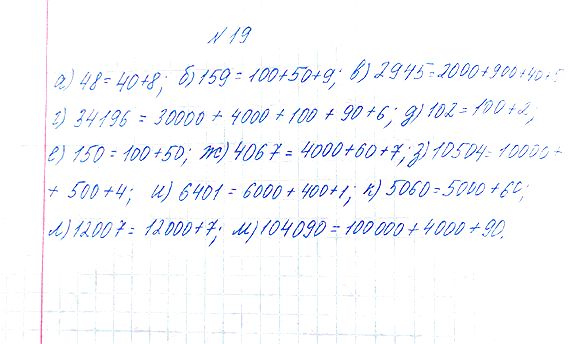 №19
а) 48=40+8; б) 159=100+50+9; в) 2945=2000+900+40+5
г) 34196 = 30000 + 4000 + 100 + 90 + 6; д) 102 = 100+2;
е) 150=100+50; ж) 4067 = 4000+60+7; з) 10504=10000+
+ 500+4; и) 6401 = 6000+400+1; к) 5060=5000+60;
л) 12007= 12000+7; м) 104090 = 100000+4000+90.